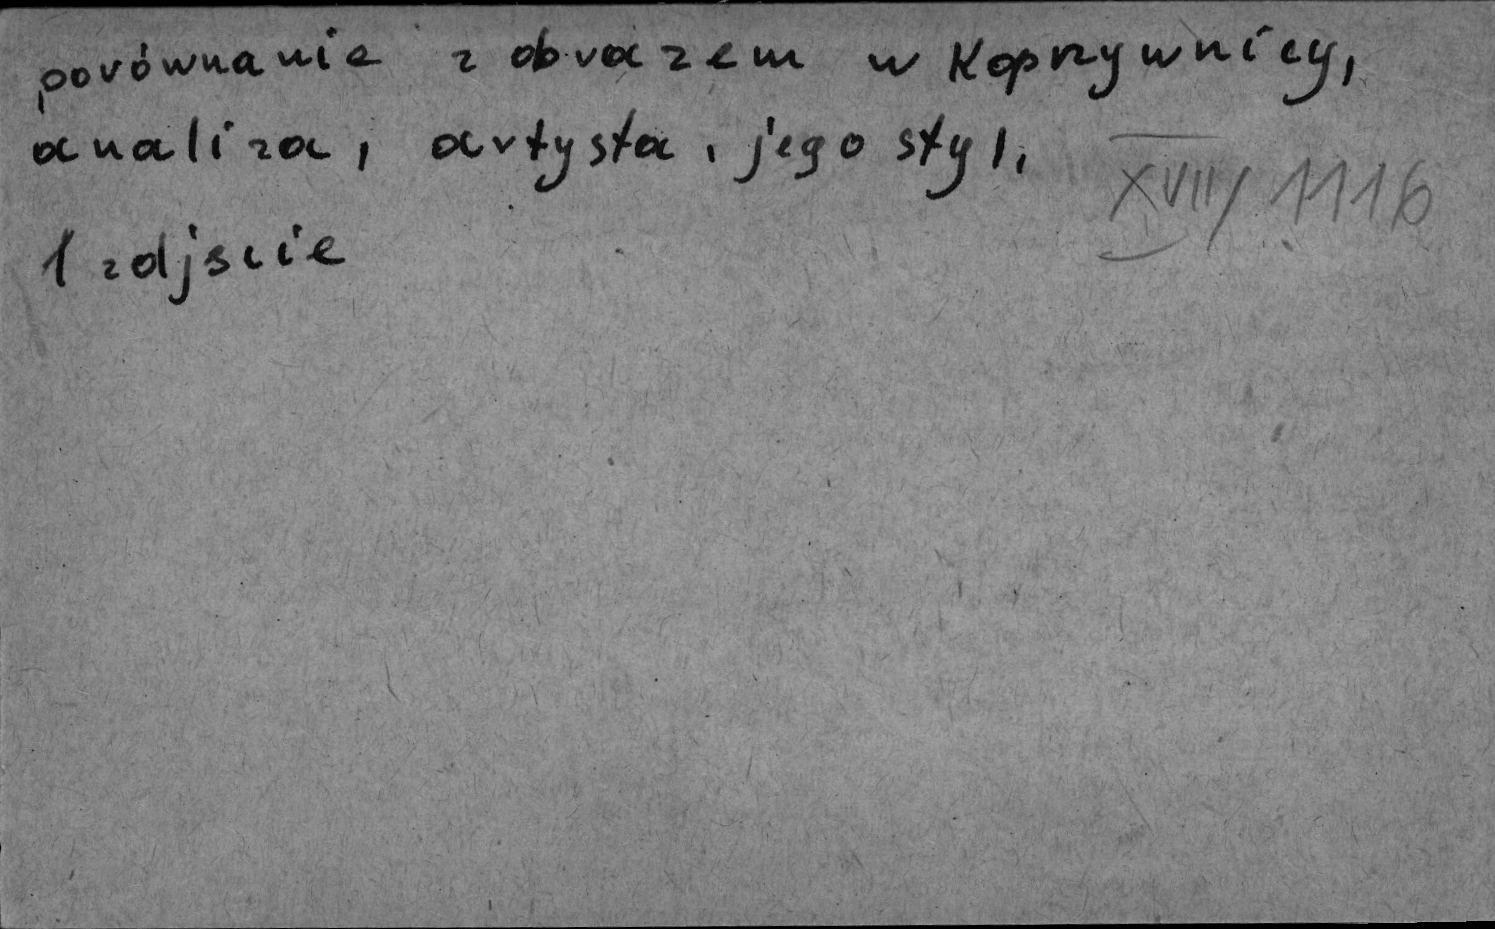 porównanie z obrazem w Koprzywnicy,
analiza, artysta, jego styl,
XVII/1116
1 zdjście